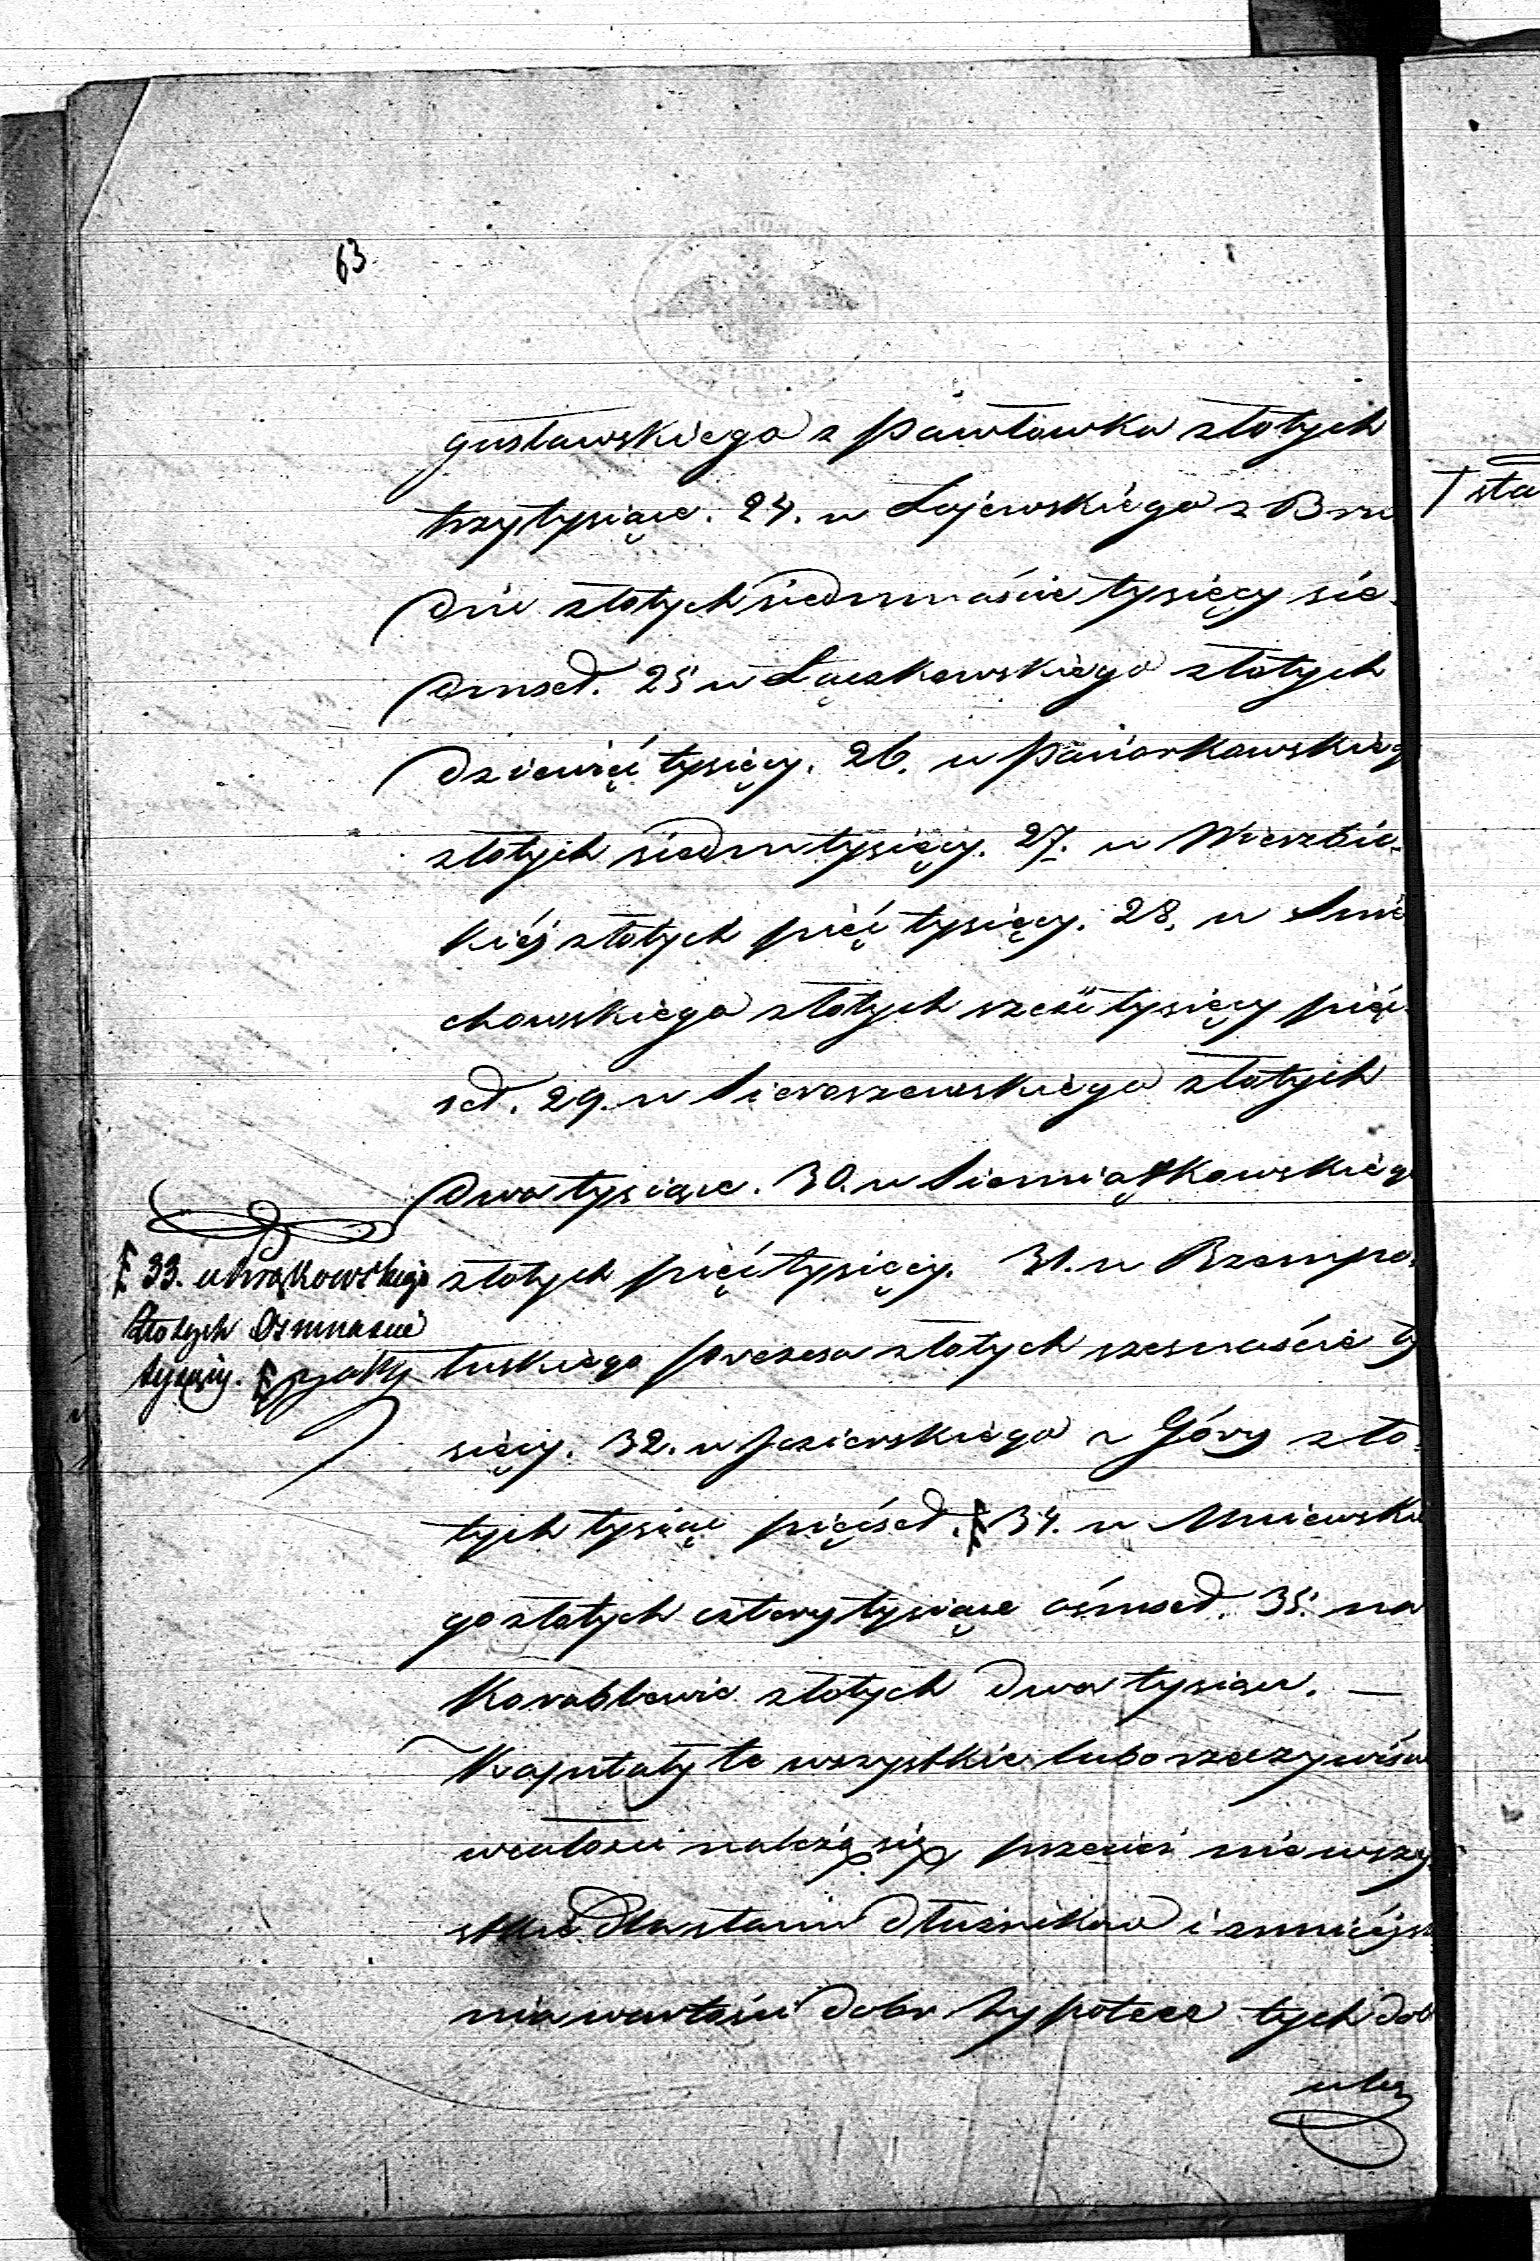 63
gustawskiego z Pawłowka złotych
trzy tysiące. 24. u Łajewskiego z Bru
dnie złotych siedmnaście tysięcy sie-
dmset. 25 u Łączkowskiego złotych
dziewięć tysięcy. 26. u Paniorkowskieg
złotych siedm tysięcy. 27. u Wierzbic-
kiéj złotych pięć tysięcy. 28. u Smie
chowskiego złotych sześć tysięcy pięć
set. 29. u Sieroszewskiego złotych
dwa tysiące. 30. u Siemiątkowskieg
złotych pięć tysięcy. 31. u Rzempo-
łuskiego prezesa złotych szesnaście ty
sięcy. 32. u Jezierskiego z Góry zło-
tych tysiąc pięćset. 34. u Mniewskie
go złotych cztery tysiące ośmset. 35. na
Korablewie złotych dwa tysiące. —
Kapitały te wszystkie lubo rzeczywiście
w całości należą się, przecież nie wszy-
stkie dla stanu dłużników i zmniéjsze
nia wartości dobr hypotece tych dob
33. u
złotych Osmnaście
tysięcy.
sta